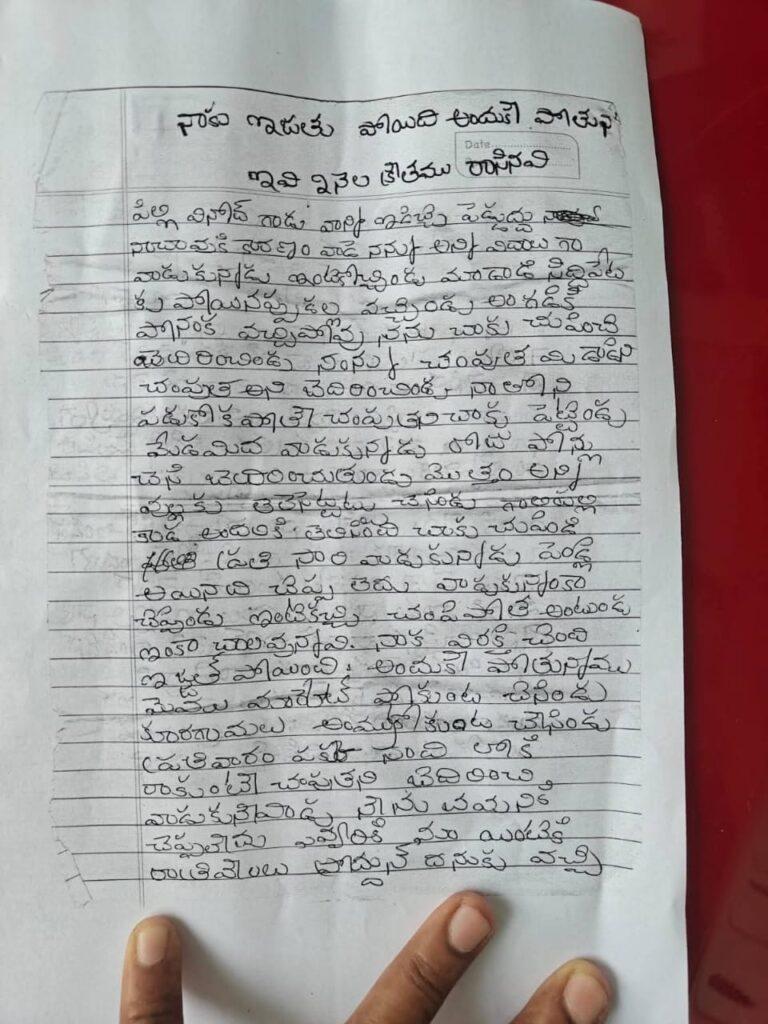 నాకు ఇజతు పోయిది అందుకె పోతున
Date
ఇవి ఇనెల క్రితము రాసినవి
పిల్లి వినోద్ గాడు వాన్ని ఇడిచ్చి పెడ్దుద్దు
నాచావుకి కారణం వాడె నన్ను అన్ని విదాలు గా
వాడుకున్నడు ఇంటికోచ్చిండు మాడాడి సిద్దిపేట
కు పోయినప్పుడల వచ్చిండు అంగడికి
పోనంక వచ్చిపోవు నేను చాకు చుపించి
బెదిరించిండు నన్ను చంపుత మి
చంపుత అని బెదిరించిండు నా తోని
పడుకోక పోతె చంపుతని చాక్కు పెట్టిండు
మేడమిద వాడుకున్నడు రోజు పోన్లు
చెసి బెదిరించుతుండు మొత్తం అన్ని
వూల్లకు తెలిసెట్టుటు చెసిండు గాలిపల్లి
కాడ అందరికి తెలిసింది చాకు చుపించి
ప్రతి సారి వాడుకున్నడు పెండ్లి
అయినది చెప్ప లెదు వాడుకున్నంకా
చెప్పిండు ఇంటికచ్చి చంపిపోత అంటుండు
ఇంకా చాలావున్నవి. నాక విరక్తి చెంది
ఇజ్జత్ పోయింది. అందుకె పోతున్నాము
మెమ్ములు మార్కెట్ పోకుంట చేసిండు
కూరగాయలు అంముకోకుంట చేసిండు
ప్రతివారం పక్క సంది లోకి
రాకుంటె చంపుతని బెదిరించి
వాడుకునెవాడు నేను బయనికి
చెప్పలేదు ఎవ్వరికి మా యింటికి
రాత్రివేలలు పోద్దున్ దనుకు వచ్చి